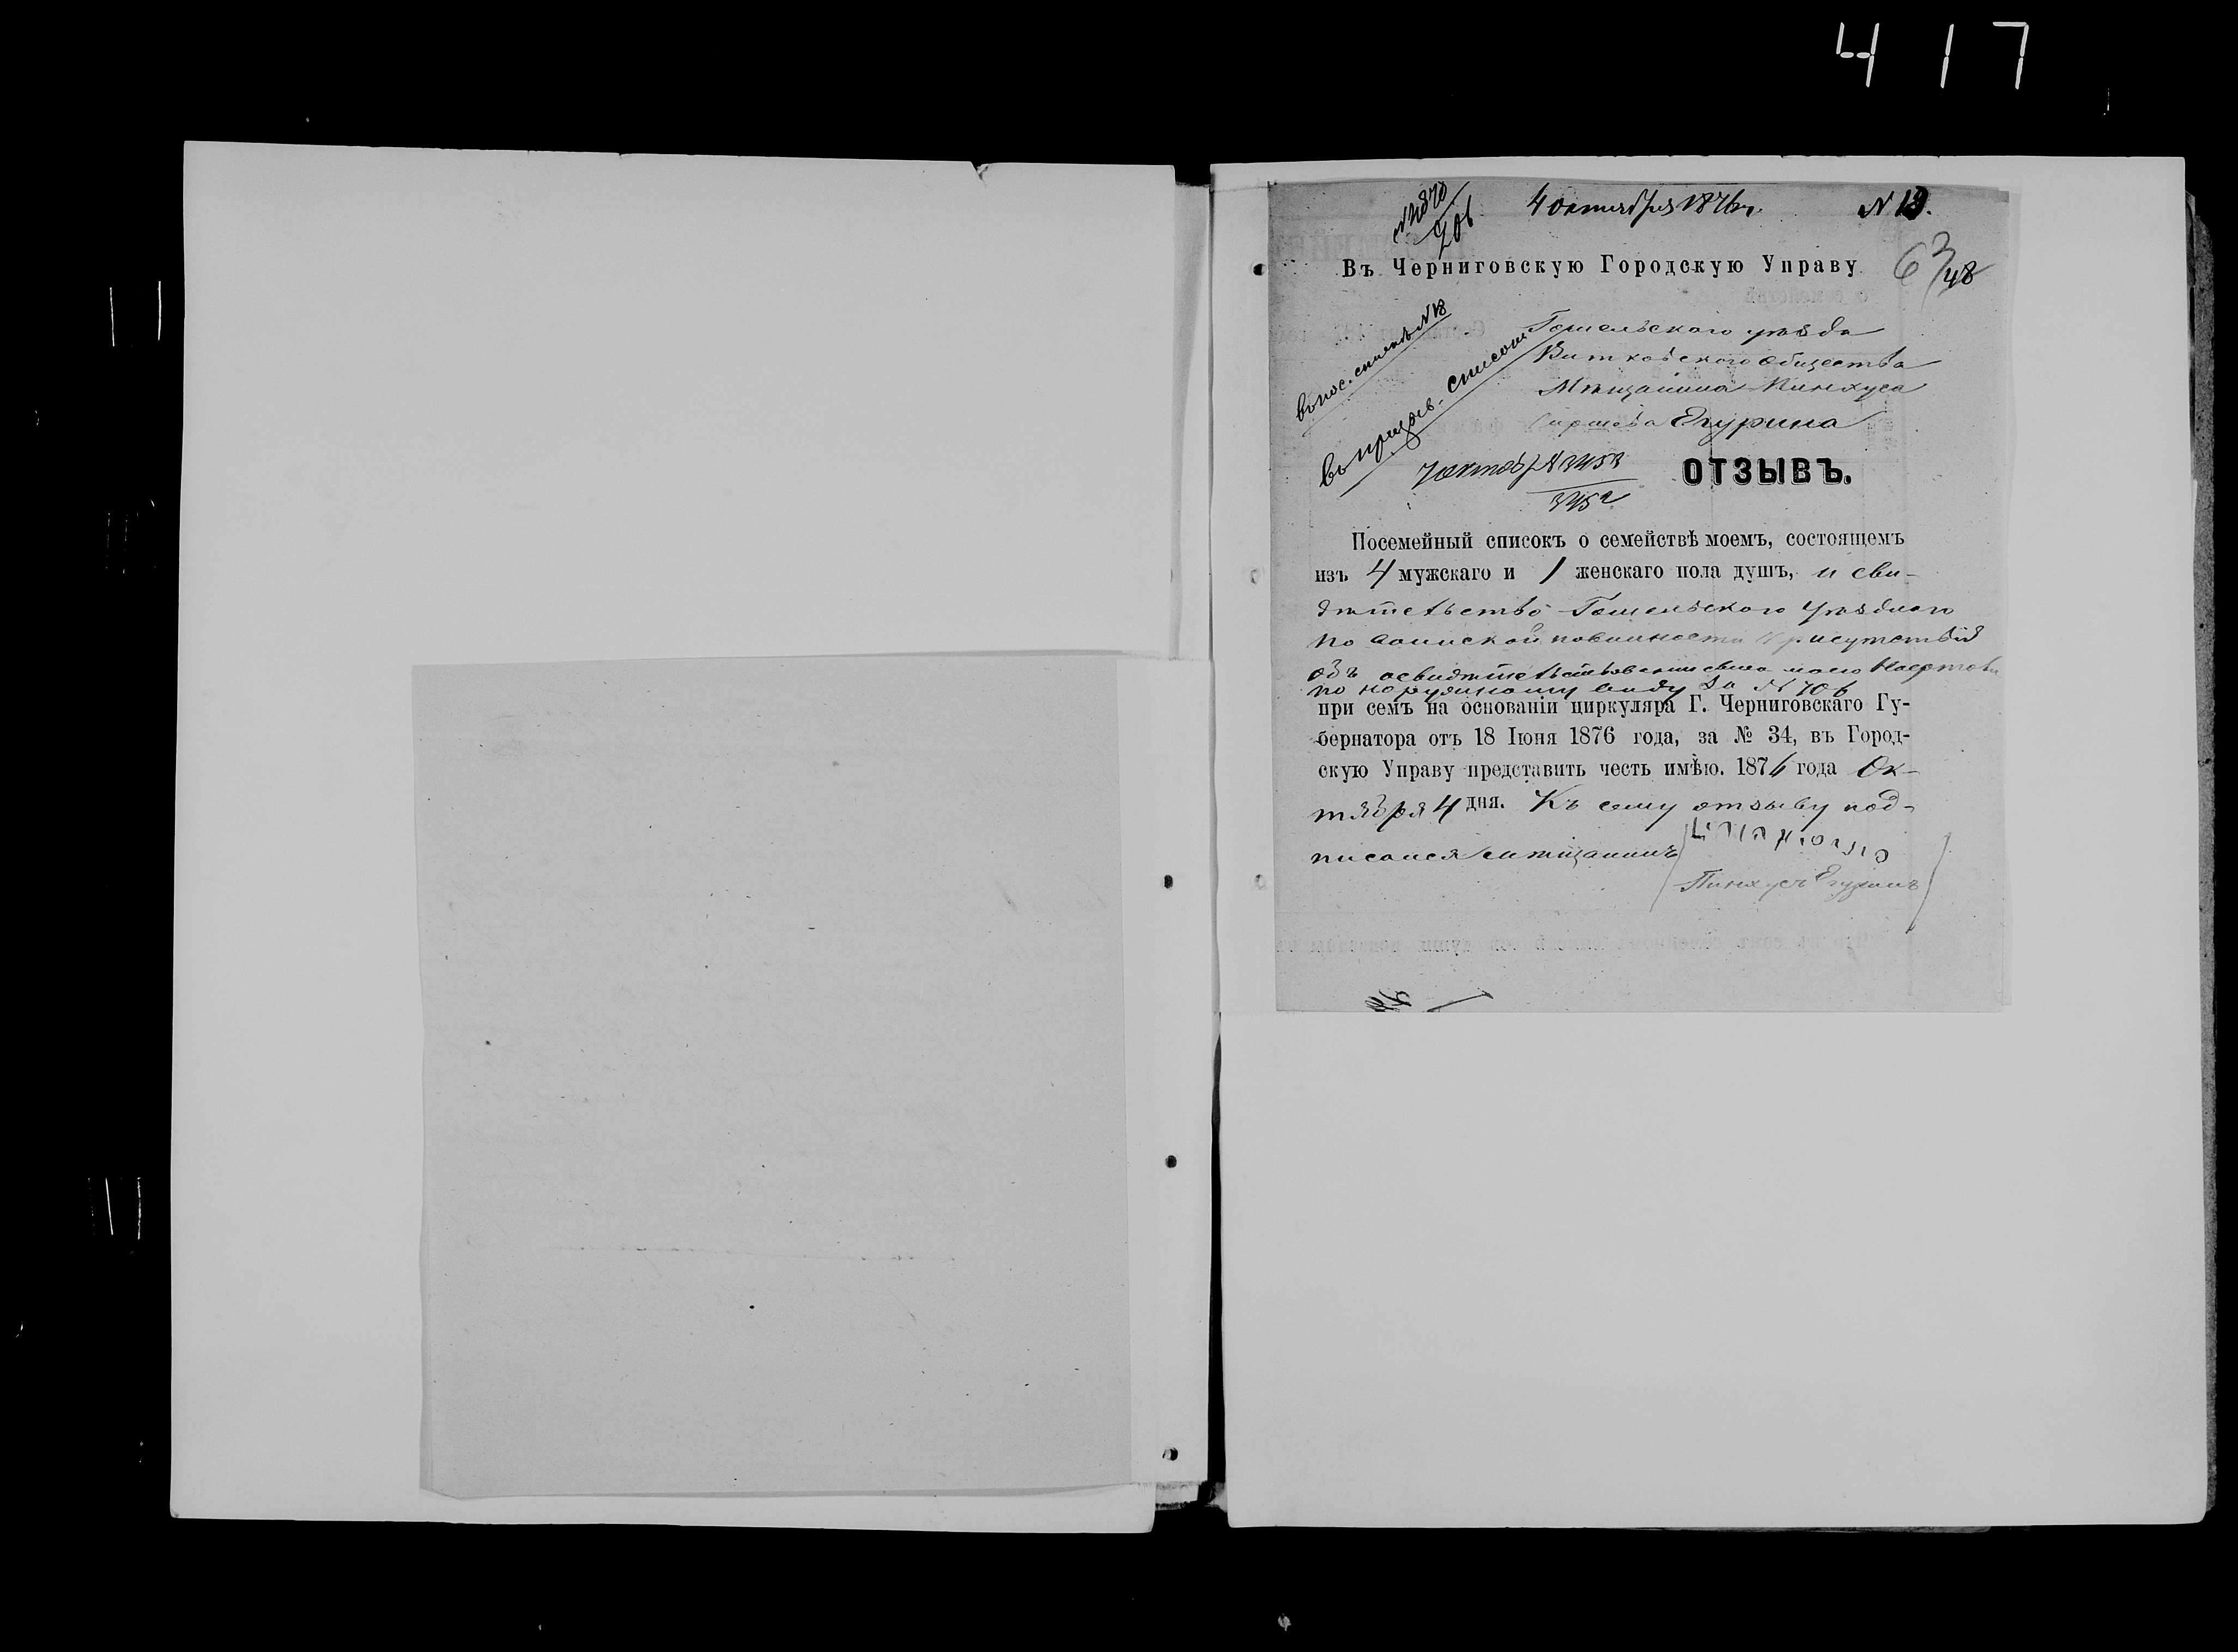 417
4 октября 1876 г. N 13.
Въ Черниговскую Городскую Управу
63/48
въ пос. списокъ N 13
Гомельского уѣзда
Ветковского общества
Мѣщанина Пинхуса
Егурина
въ призыв. списокъ
7 октяб
3452
ОТЗЫВЪ.
Посемейный списокъ о семействѣ моемъ, состоящемъ
изъ 4 мужскаго и 1 женскаго пола душъ, и сви-
дѣтельство Гомельского Уѣзднаго
по воинской повинности присутствія
объ освидѣтельствованіи сына моего
по наружному виду за № 706
при семъ на основаніи циркуляра Г. Черниговскаго Гу-
бернатора отъ 18 Іюня 1876 года, за № 34, въ Город-
скую Управу представить честь имѣю. 1876 года Ок-
тября 4 дня. Къ сему отзыву под-
писался мѣщанинъ
Пинхусъ Егуринъ